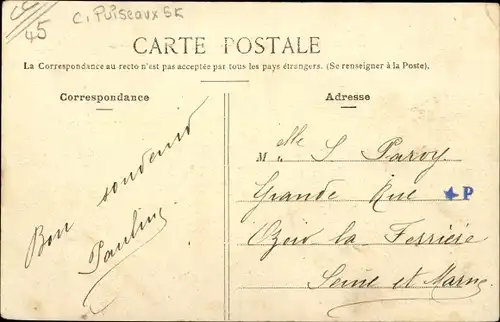 45
C. Puiseaux 5k
CARTE POSTALE
La Correspondance au recto n'est pas acceptée par tous les pays étrangers. (Se renseigner à la Poste).
Correspondance
Adresse
Bon souvenir
Pauline
Melle S Paroy.
Grande Rue
P
Ozoir la Ferrière
Seine et Marne